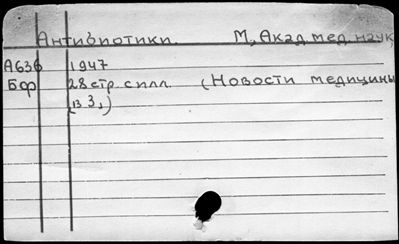 Антибиотики. М, Акад мед. наук,
А636 1947
Бф 28 стр. с илл. (Новости медицины
в 3,)